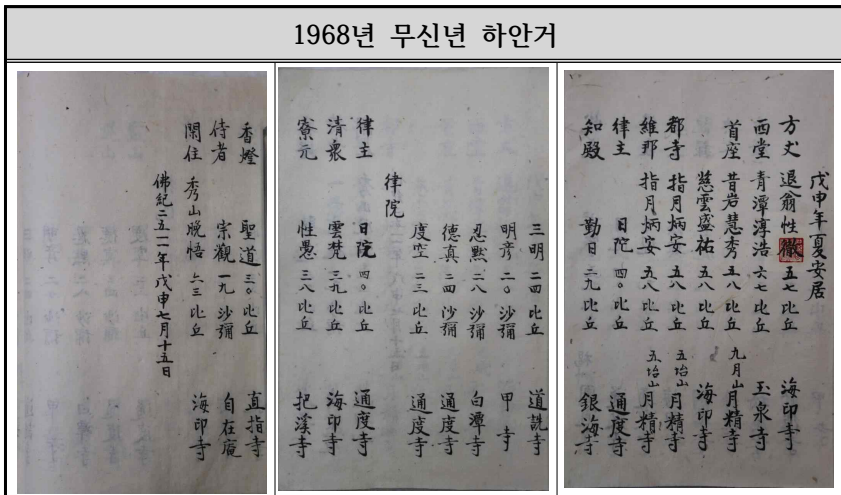 1968년 무신년 하안거
戊申年夏安居
方丈 退翁性徹 五七 比丘 海印寺
西堂 青潭淳浩 六七 比丘 玉泉寺
首座 昔岩慧秀 五八 比丘 九月山 月精寺
慈雲盛祐 五八 比丘 海印寺
都寺 指月炳安 五八 比丘 五坮山 月精寺
維那 指月炳安 五八 比丘 五坮山 月精寺
律主 日陀 四〇 比丘 通度寺
知殿 勤日 二九 比丘 銀海寺
三明 二四 比丘 道詵寺
明彦 二〇 沙彌 甲寺
忍黙 二八 沙彌 白潭寺
德真 二四 沙彌 通度寺
度空 二三 比丘 通度寺
律院
律主 日陀 四〇 比丘 通度寺
清衆 雲梵 三九 比丘 海印寺
寮元 性愚 三八 比丘 把溪寺
香燈 聖道 三〇 比丘 直指寺
侍者 宗觀 一九 沙彌 自在庵
閑住 秀山晩悟 六三 比丘 海印寺
佛紀二五一一年戊申七月十五日